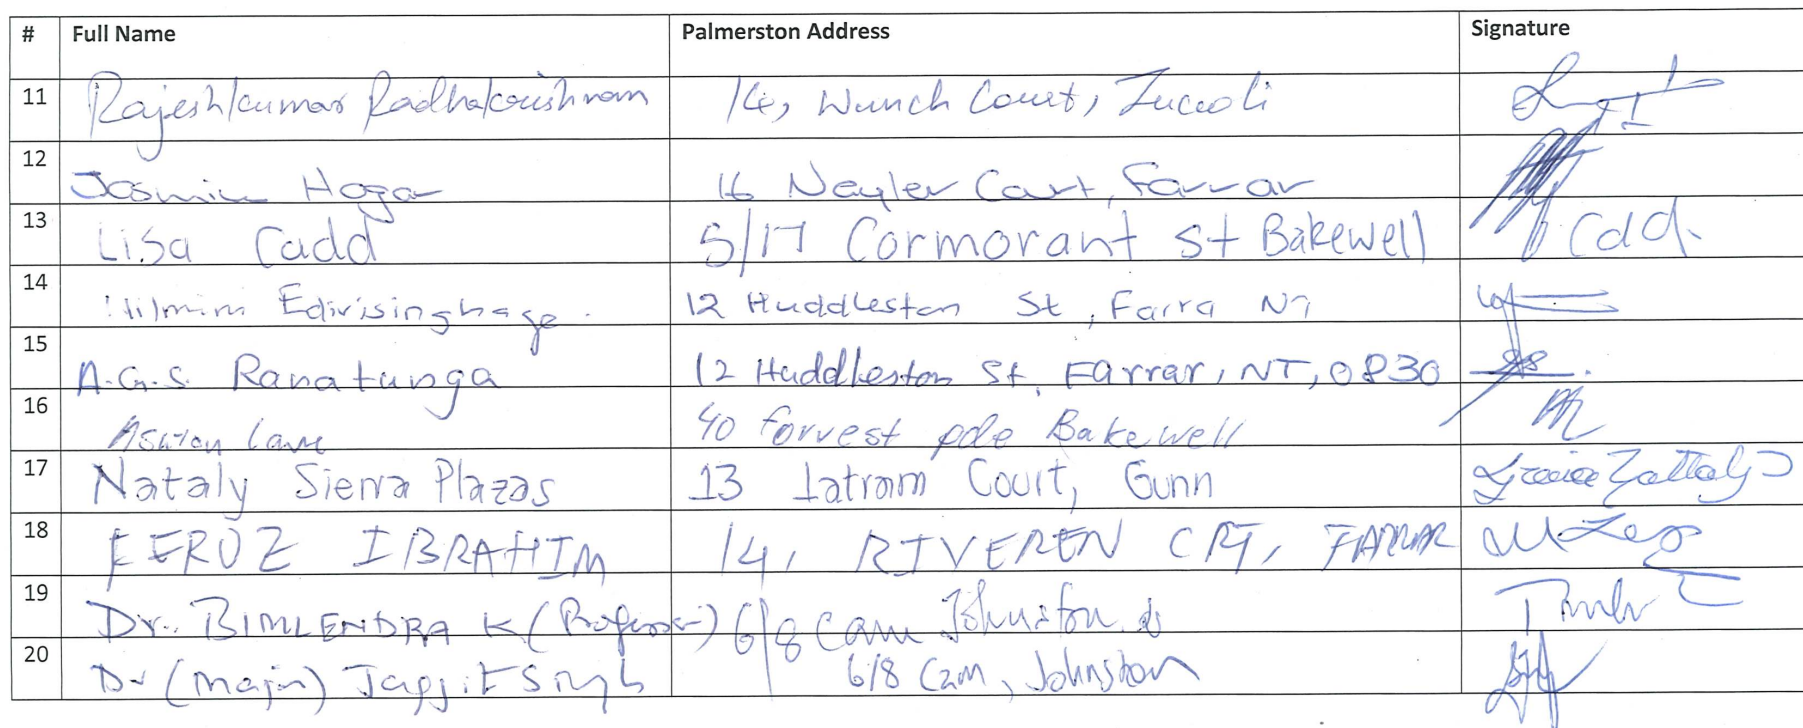 # Full Name Palmerston Address Signature
11 Rajeshkumar Radhakrishnan 14, Wunch Court, Zuccoli
12 Jasmin Hogar 16 Nayler Court, Farrar
13 Lisa Cadd 5/17 Cormorant St Bakewell Cdd.
14 Edirisinghage. 12 Huddleston St, Farra NT
15 A.G.S. Ranatunga 12 Huddleston St, Farrar, NT, 0830
16 Lane 40 forrest pde Bakewell
17 Nataly Sierra Plazas 13 Iatram Court, Gunn
18 FEROZ IBRAHIM 14, RIVEREN CRT, FARRAR
19 Dr. BIMLENDRA K (Professor) 6/8 Cam Johnston
20 Dr (Major) Jagjit Singh 6/8 Cam, Johnston